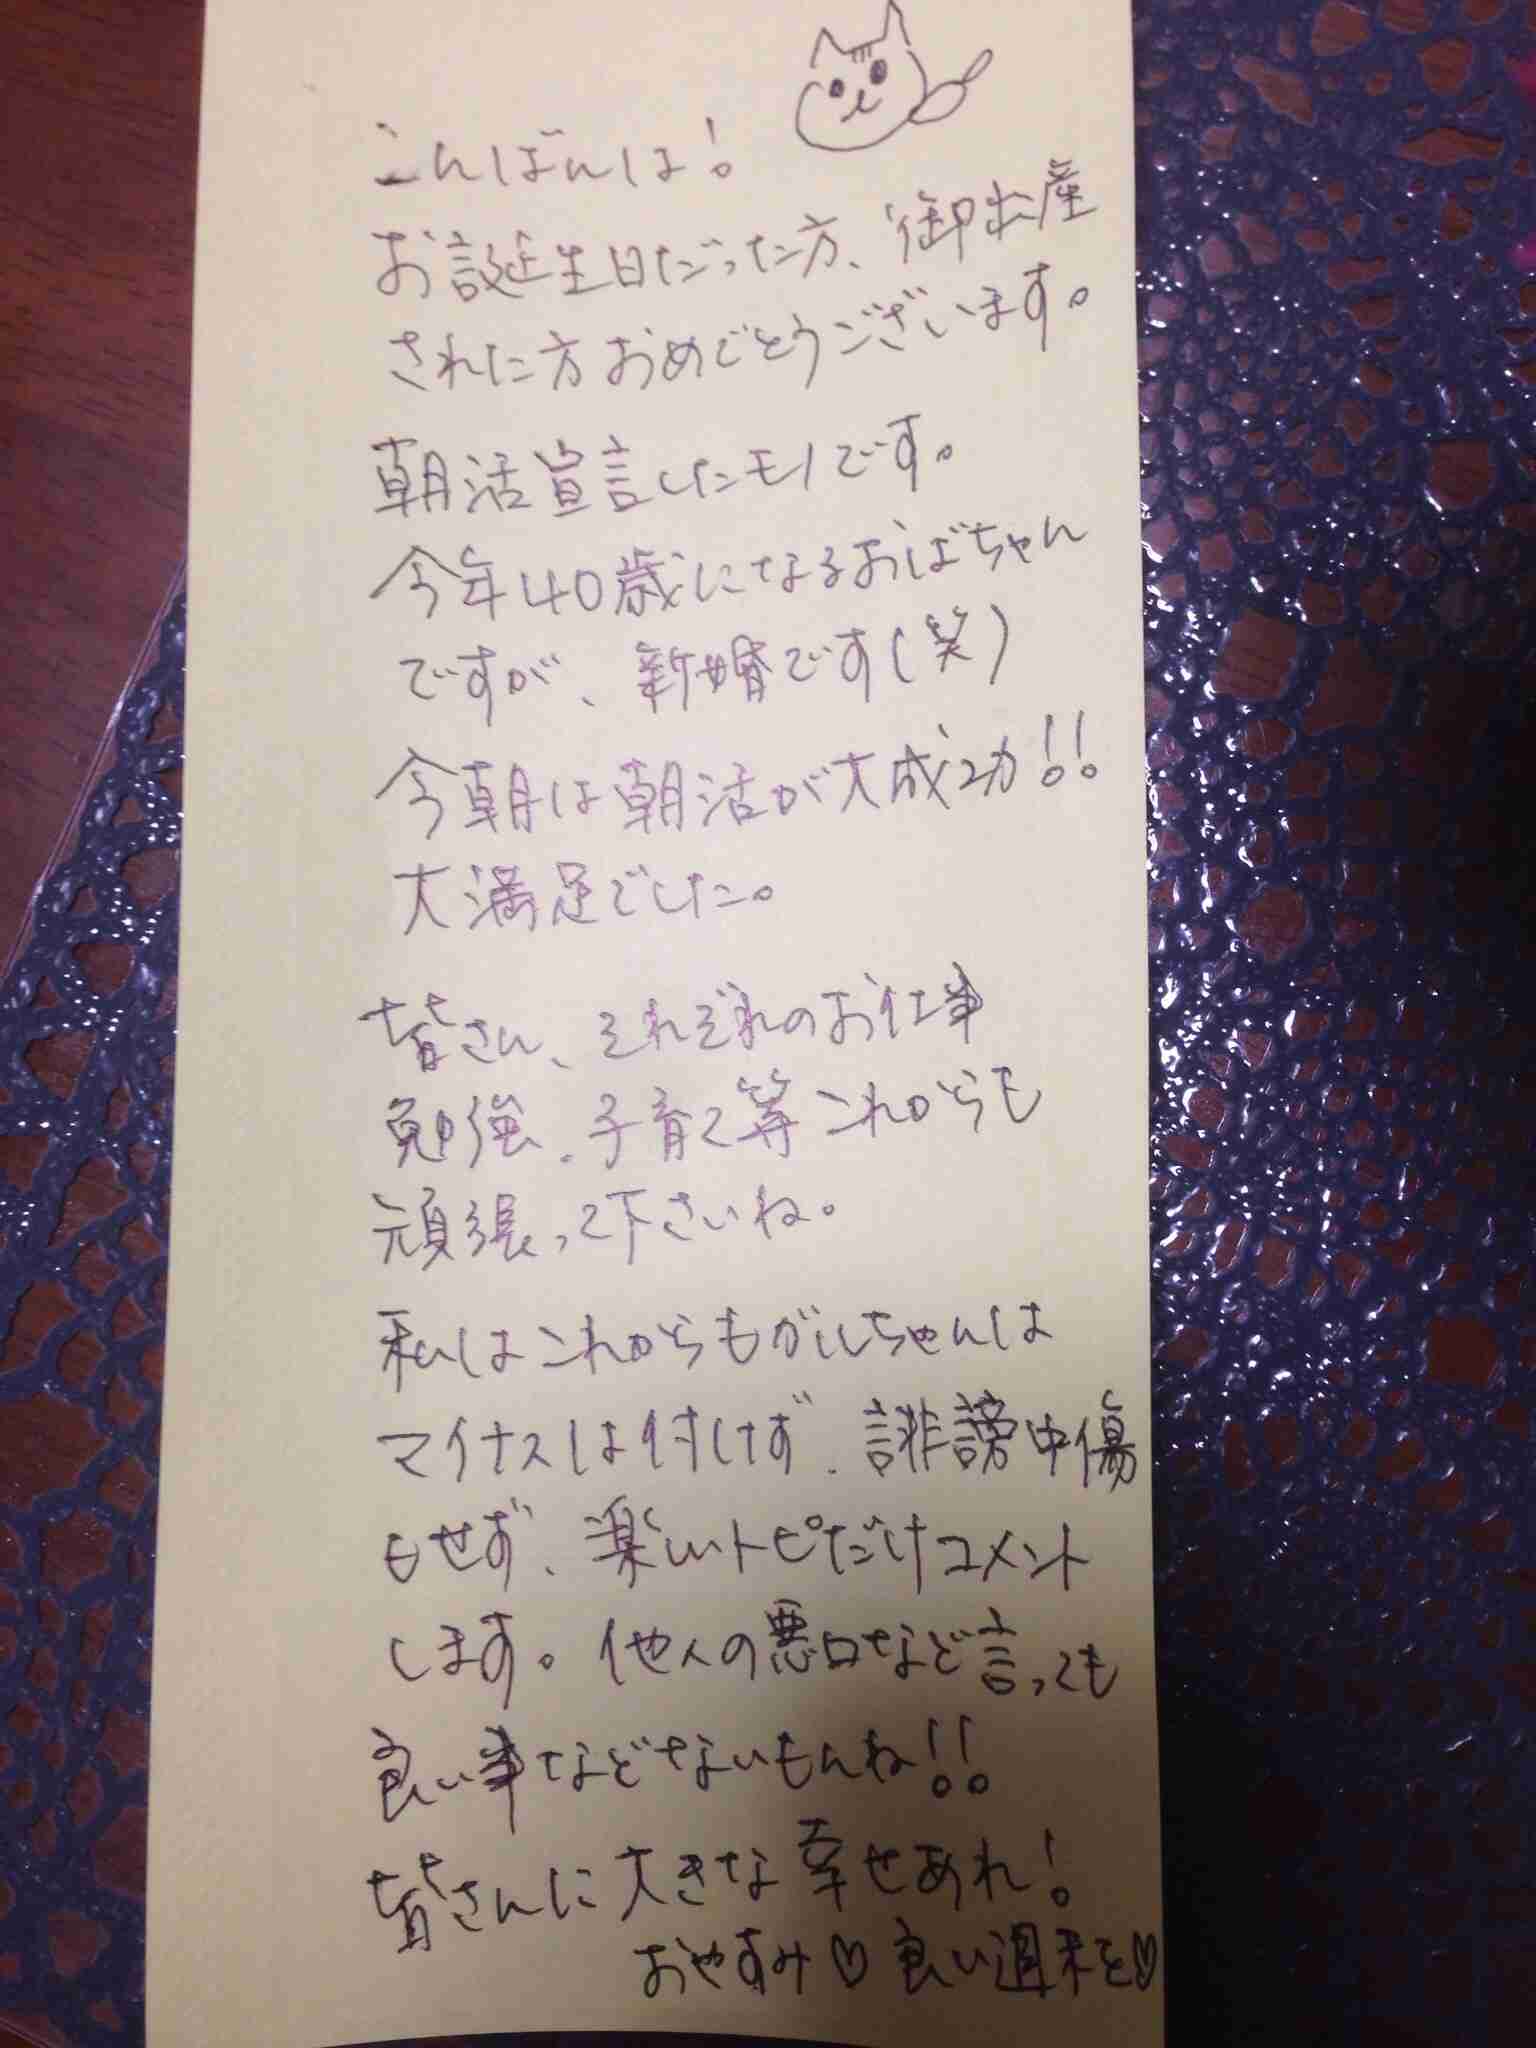 こんばんは!
お誕生日だった方、御出産
された方おめでとうございます。
朝活宣言したモノです。
今年40歳になるおばちゃん
ですが、新婚です(笑)
今朝は朝活が大成功!!
大満足でした。
皆さん、それぞれのお仕事
勉強、子育て等これからも
頑張って下さいね。
私はこれからもガルちゃんは
マイナスは付けず、誹謗中傷
もせず、楽しいトピだけコメント
します。他人の悪口など言っても
良い事などないもんね!!
皆さんに大きな幸せあれ!
おやすみ♡良い週末を♡